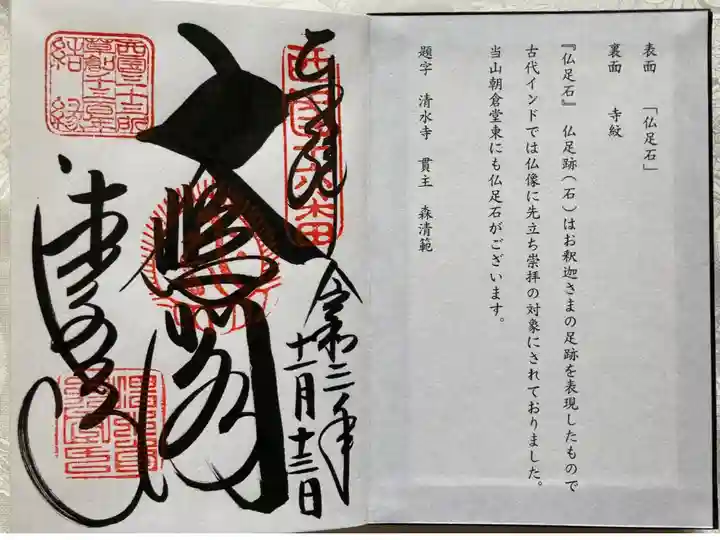 表面　「仏足石」
裏面　寺紋
『仏足石』　仏足跡(石)はお釈迦さまの足跡を表現したもので
古代インドでは仏像に先立ち崇拝の対象にされておりました。
当山朝倉堂東にも仏足石がございます。
題字　清水寺　貫主　森清範
奉拝
令和三年
十一月十三日
大悲閣
清水寺
西国三十三所
草創1300年
結縁